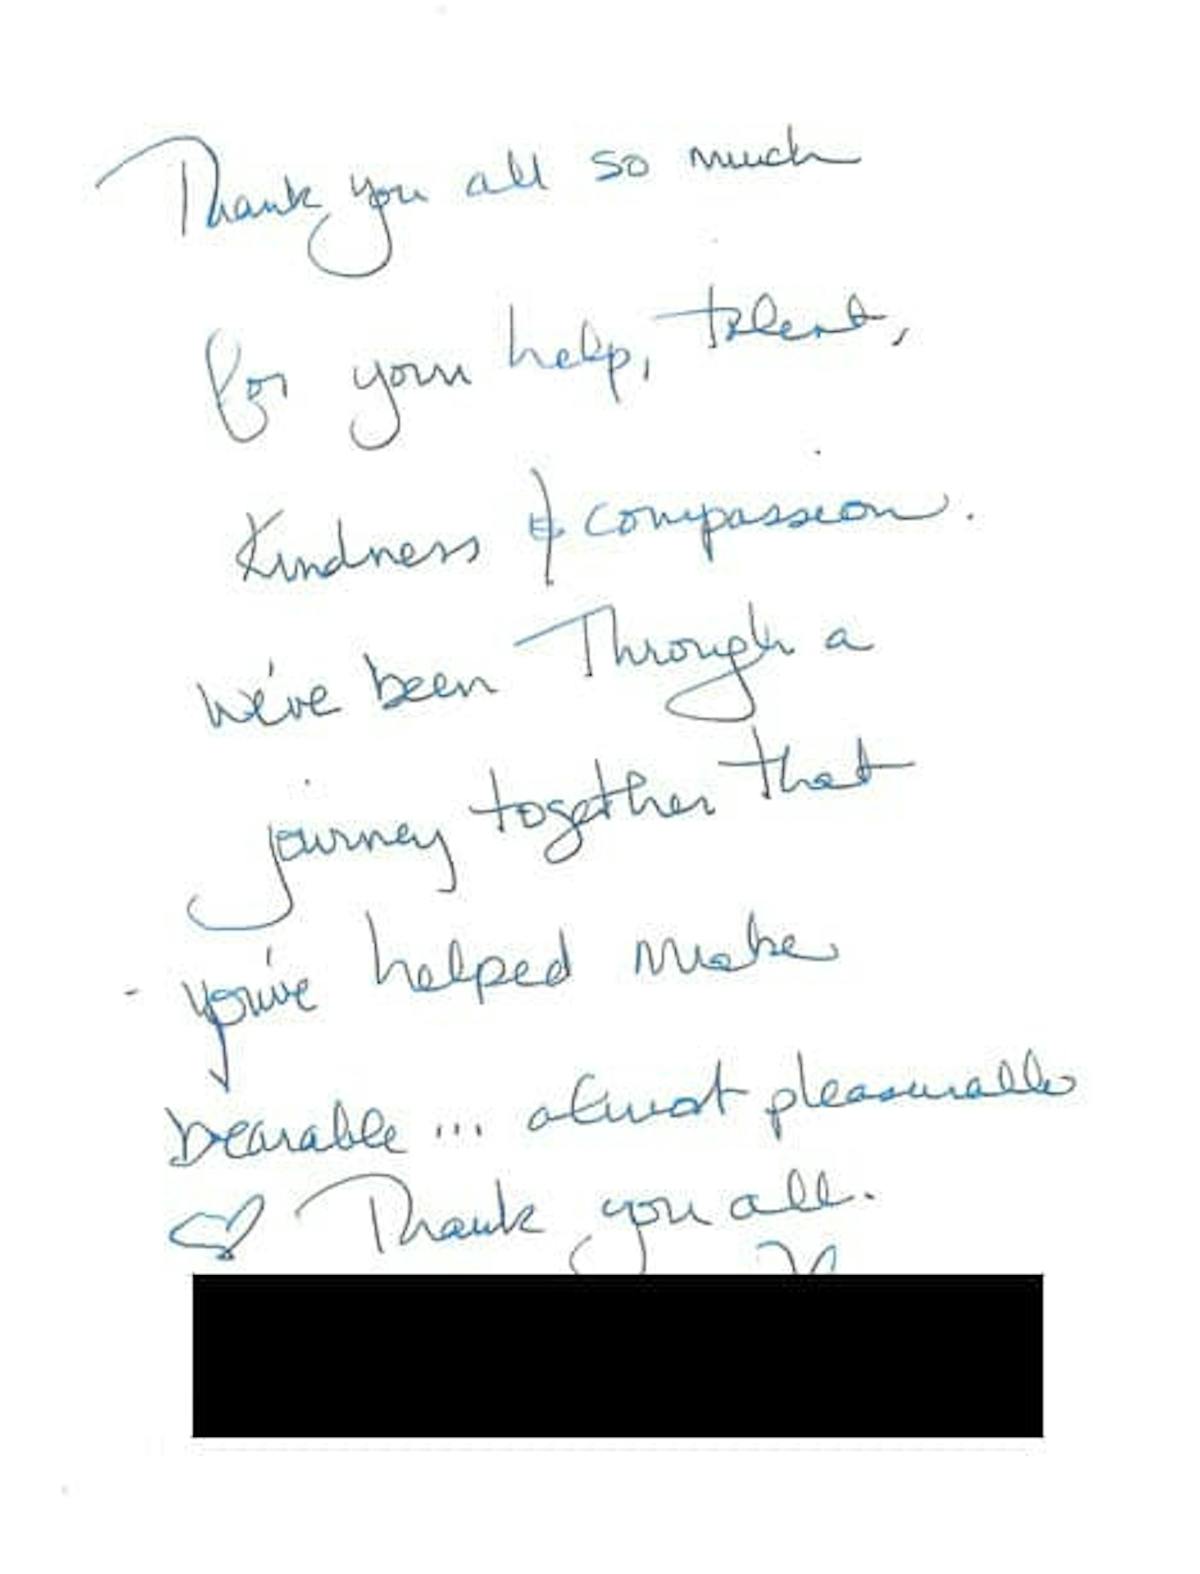 Thank you all so much
for your help, talent,
Kindness & compassion.
We've been Through a
journey together that
you've helped make
bearable ... almost pleasurable
♡ Thank you all.